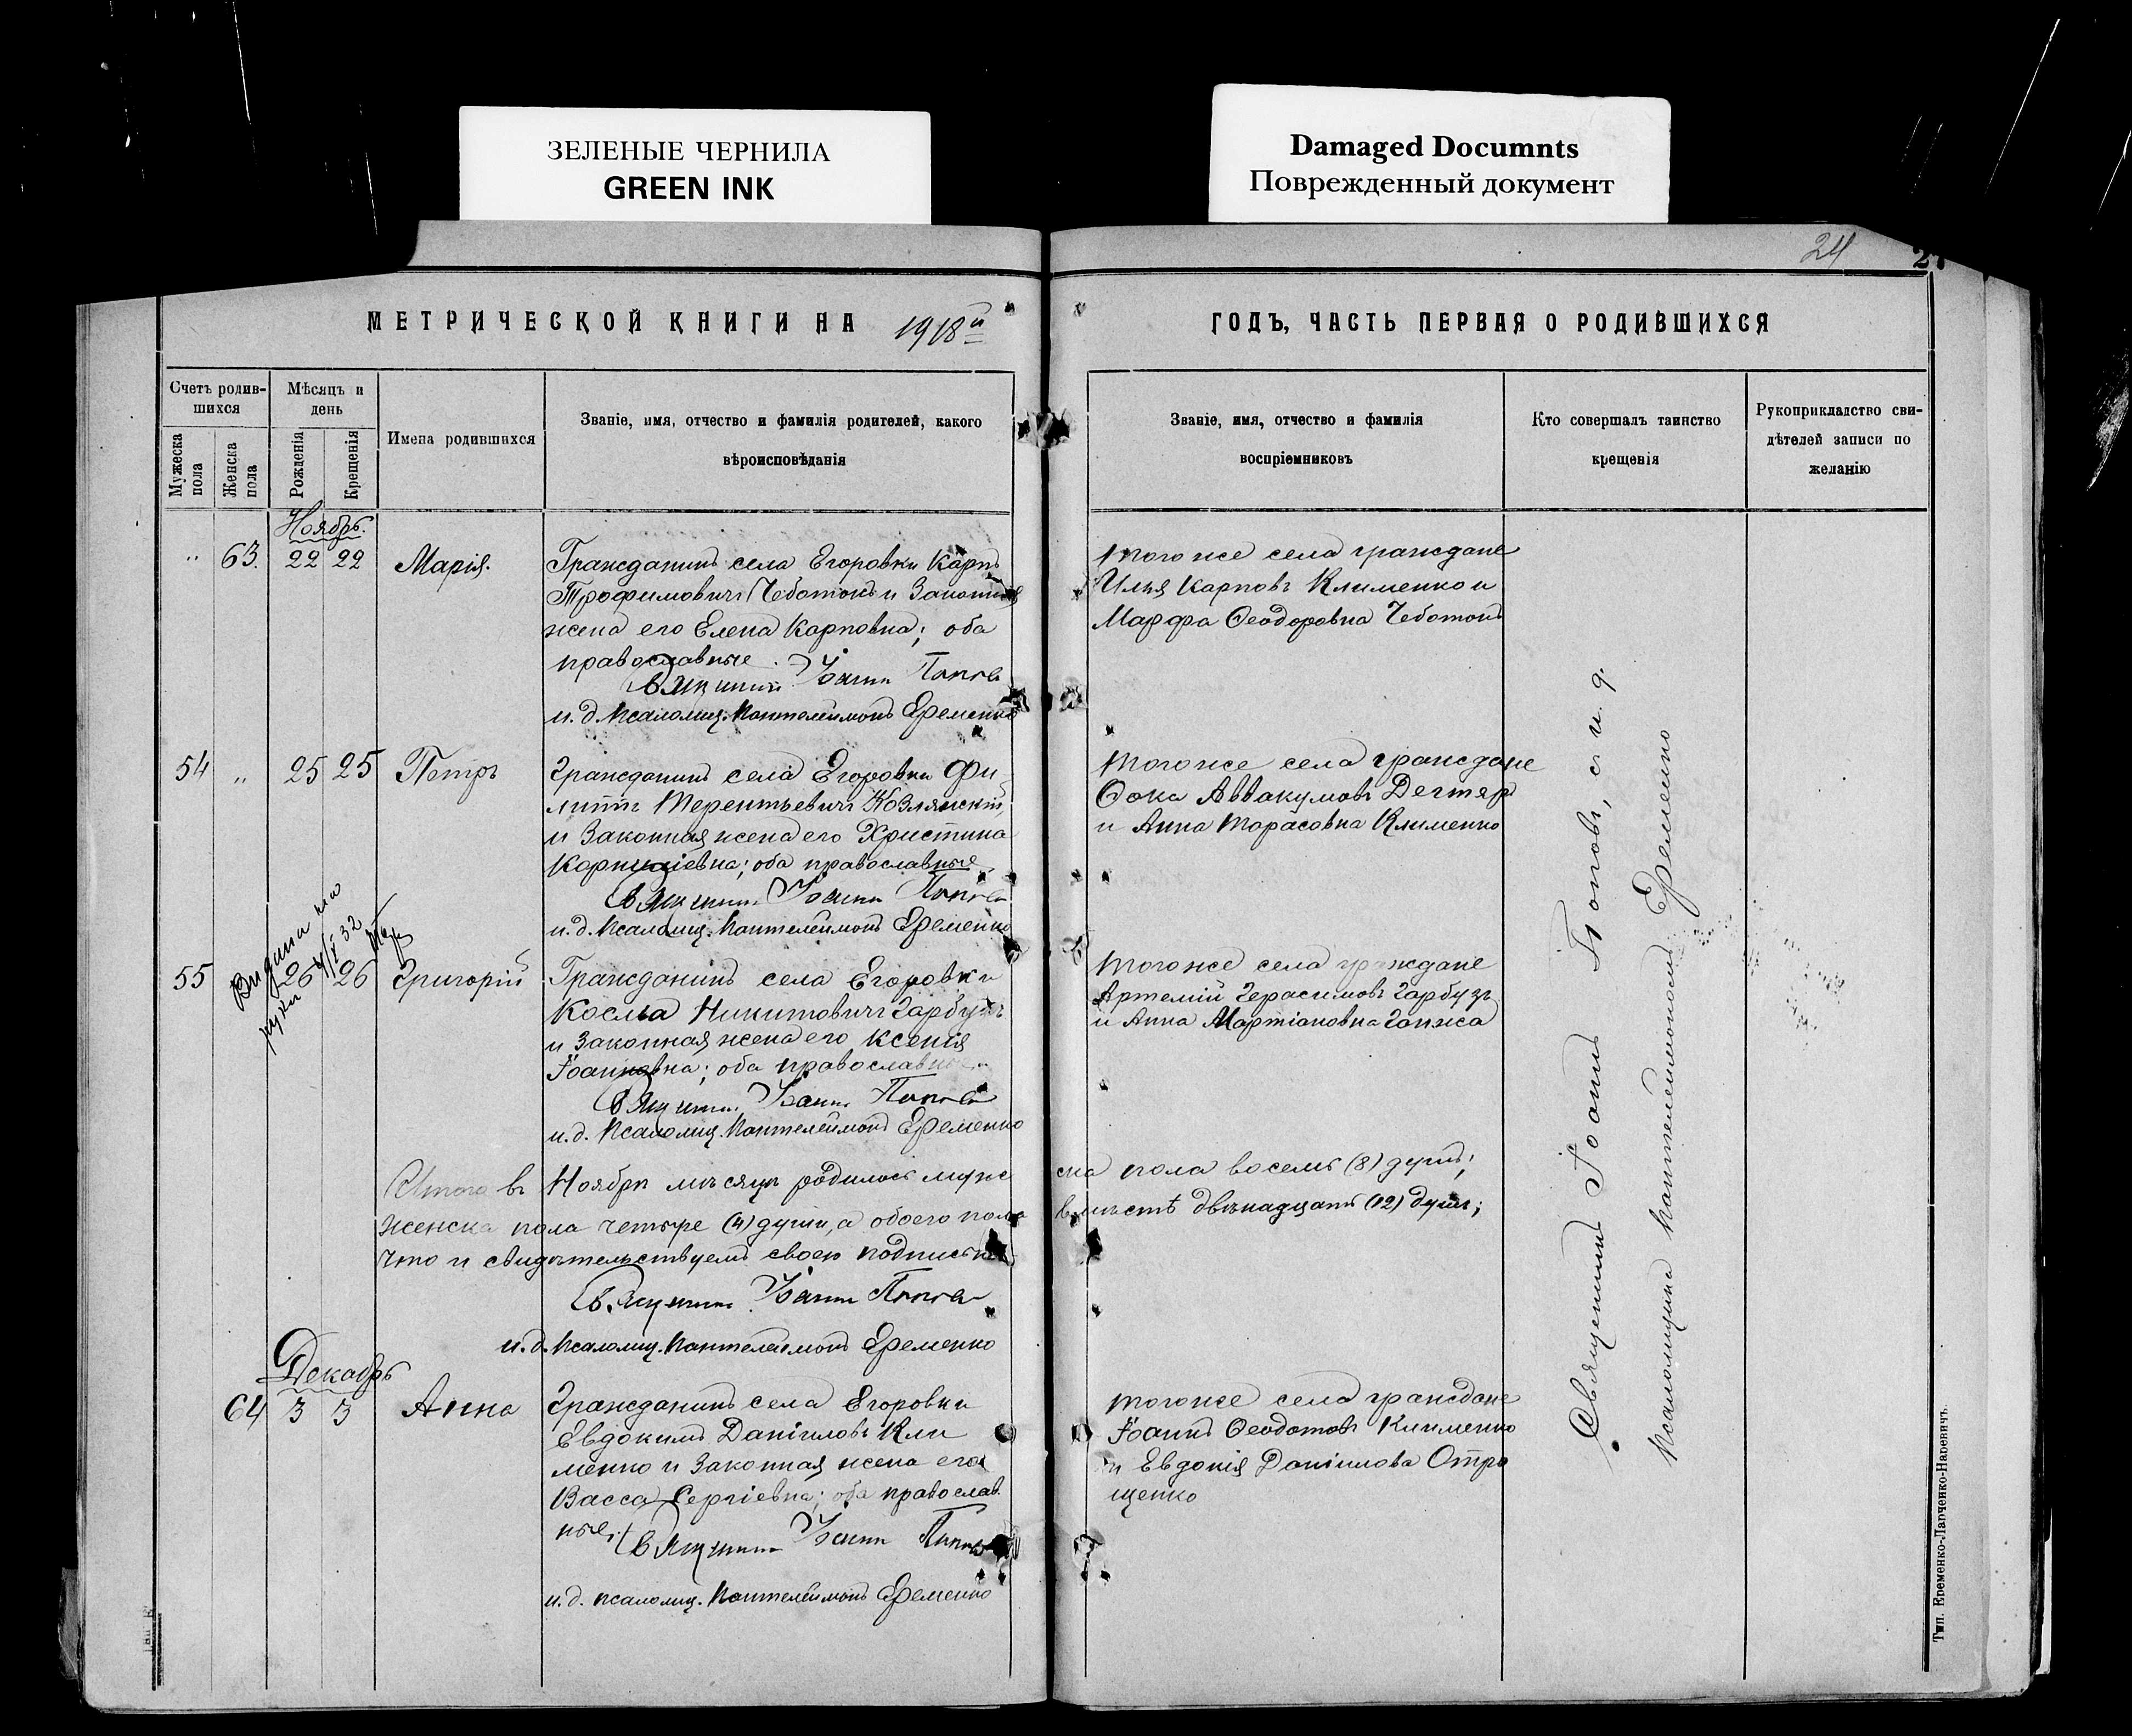 ЗЕЛЕНЫЕ ЧЕРНИЛА
GREEN INK
Damaged Documnts
Поврежденный документ
24
МЕТРИЧЕСКОЙ КНИГИ НА 1918й
ГОДЪ, ЧАСТЬ ПЕРВАЯ О РОДИВШИХСЯ
Счетъ родив-
шихся
Мужеска пола
Женска пола
Мѣсяцъ и
день
Рожденія
Крещенія
Имена родившихся
Званіе, имя, отчество и фамилія родителей, какого
вѣроисповѣданія
Званіе, имя, отчество и фамилія
воспріемниковъ
Кто совершалъ таинство
крещенія
Рукоприкладство сви-
дѣтелей записи по
желанію
Ноябрь.
" 63. 22 22 Марія.
Гражданинъ села Егоровки Карпъ
Трофимовичъ Чеботокъ и Законная
жена его Елена Карповна; оба
православные.
Священникъ Іоаннъ Поповъ
и. д. псаломщ. Пантелеимонъ Еременко
того же села граждане
Илья Карповъ Клименко и
Марфа Ѳеодоровна Чеботокъ
54 " 25 25 Петръ
Гражданинъ села Егоровки Фи-
липпъ Терентьевичъ Козлянскій,
и Законная жена его Христина
Корниліевна; оба православные
Священникъ Іоаннъ Поповъ
и. д. псаломщ. Пантелеимонъ Еременко
того же села граждане
Ѳока Аввакумовъ Дегтяр
и Анна Тарасовна Клименко
55 26 26 Григорій
Гражданинъ села Егоровки
Косма Никитовичъ Гарбузъ
и Законная жена его Ксенія
Іоанновна; оба православные
Священникъ Іоаннъ Поповъ
и. д. псаломщ. Пантелеимонъ Еременко
того же села граждане
Артемій Герасимовъ Гарбузъ
и Анна Мартіановна Ганжа
Итого въ Ноябрѣ мѣсяцѣ родилось муже ска пола восемь (8) душъ;
женска пола четыре (4) души, а обоего пола вмѣстѣ двѣнадцать (12) душъ;
Что и свидѣтельствуемъ своею подписью
Священникъ Іоаннъ Поповъ
и. д. псаломщ. Пантелеимонъ Еременко
Декабрь
64 3 3 Анна
Гражданинъ села Егоровки
Евдокимъ Даніиловъ Кли
менко и Законная жена его
Васса Сергіевна; оба православ.
ные.
Священникъ Іоаннъ Поповъ
и. д. псаломщ. Пантелеимонъ Еременко
того же села граждане
Іоаннъ Ѳеодотовъ Клименко
и Евдокія Даніилова Отро
щенко
Священникъ Іоаннъ Поповъ, с и. д.
псаломщика Пантелеимономъ Еременко
Тип. Еременко-Лапченко-Наревичъ.